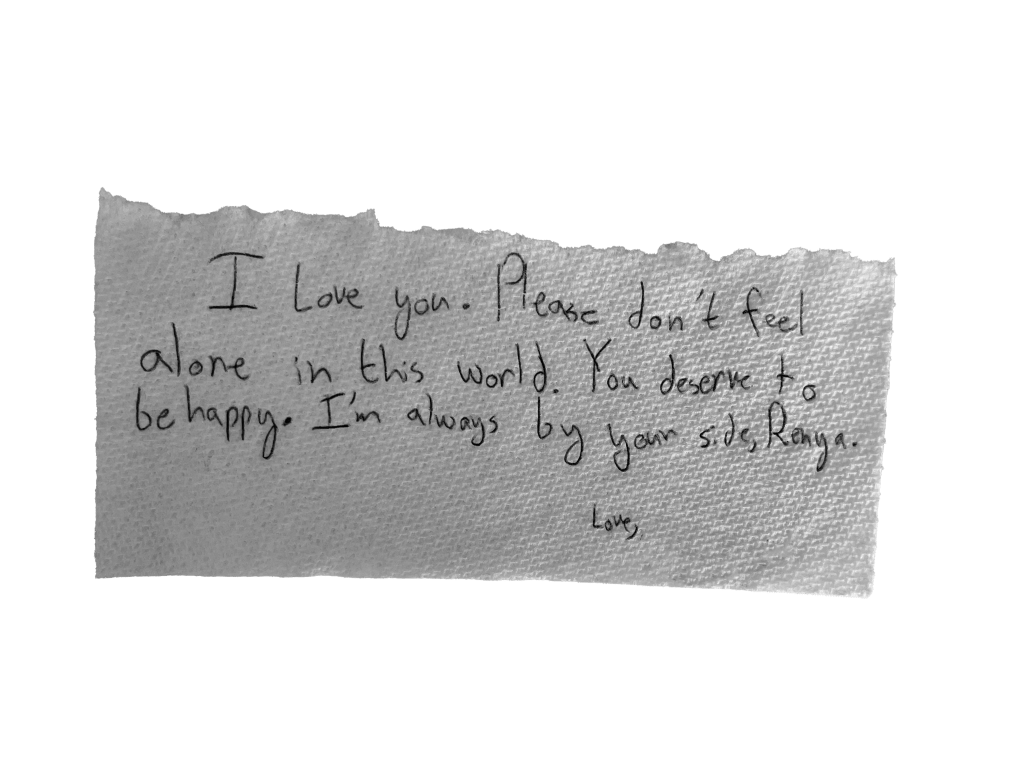 I Love you. Please don't feel
alone in this world. You deserve to
be happy. I'm always by your side, Renya.
Love,